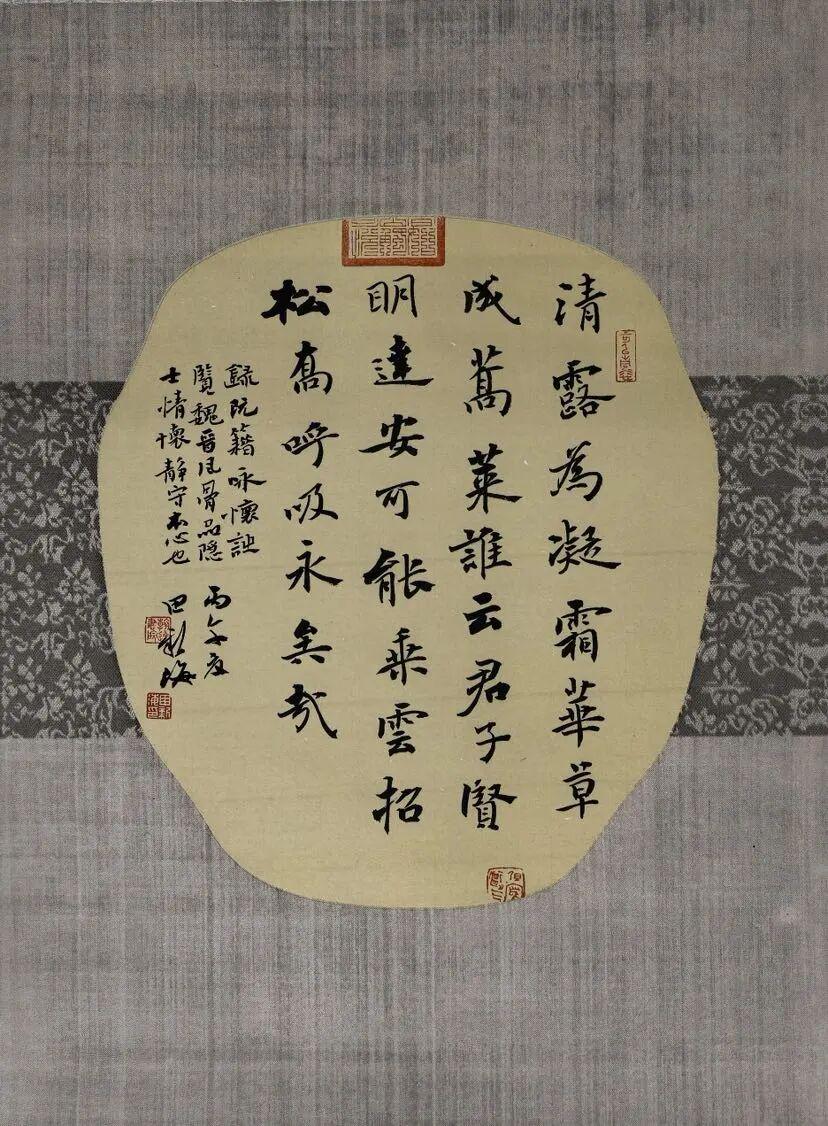 清露為凝霜華草
成蒿萊誰云君子賢
明達安可能乘雲招
松喬呼吸永矣哉
錄阮籍咏懷詩
覽魏晉風骨品隱
士情懷靜守本心也
丙午夏
田新海